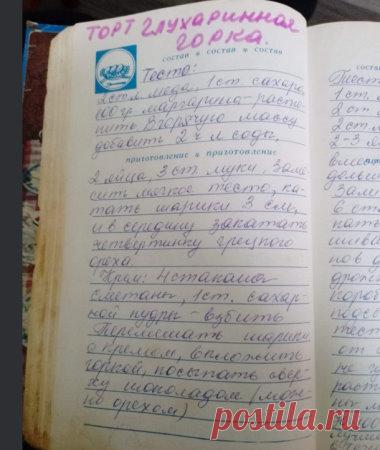 ТОРТ ГЛУХАРИННАЯ
ГОРКА.
СОСТАВ ★ СОСТАВ ★ СОСТАВ
Тесто:
2 ст.л. меда, 1 ст сахара,
100 гр. маргарина – расто-
пить. В горячую массу
добавить 2 ч л соды,
ПРИГОТОВЛЕНИЕ ★ ПРИГОТОВЛЕНИЕ
2 яйца, 3 ст. муки. Заме-
сить мягкое тесто, ка-
тать шарики 3 см,
и в середину закатать
четвертинку грецкого
ореха.
Крем: 4 стакана
сметаны, 1 ст. сахар-
ной пудры – взбить
Перемешать шарики
с кремом, выложить
горкой, посыпать свер-
ху шоколадом (мож-
но орехом)
Тесто
1 ст.
2 ст.
2 ст.
2-3
postila.ru